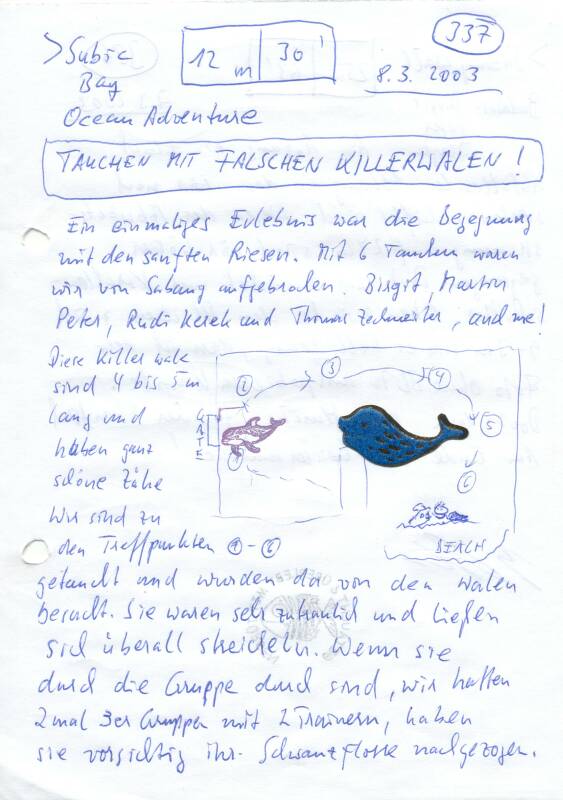 337
> Subic
Bay
12 m 30'
8.3.2003
Ocean Adventure
TAUCHEN MIT FALSCHEN KILLERWALEN!
Ein einmaliges Erlebnis war die Begegnung
mit den sanften Riesen. Mit 6 Tauchern waren
wir von Sabang aufgebrochen. Birgit, Martin
Peter, Rudi Kerek und Thomas Zechmeister, and me!
Diese Killerwale
sind 4 bis 5m
lang und
haben ganz
schöne Zähe
Wir sind zu
den Treffpunkten 1 - 6
GATE
1
2
3
4
5
6
BEACH
getaucht und wurden da von den Walen
besucht. Sie waren sehr zutraulich und ließen
sich überall streicheln. Wenn sie
durch die Gruppe durch sind, wir hatten
2mal 3er Gruppen mit 2 Trainern, haben
sie vorsichtig ihr. Schwanzflosse nachgezogen.